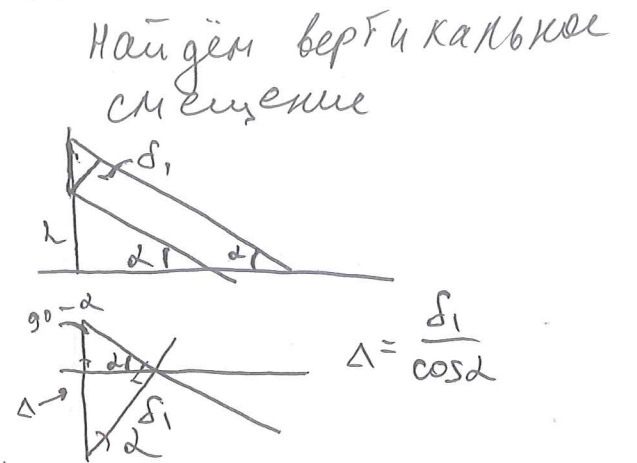 Найдём вертикальное
смещение
δ₁
h
α α
90-α
α
Δ
δ₁
α
Δ = δ₁/cosα